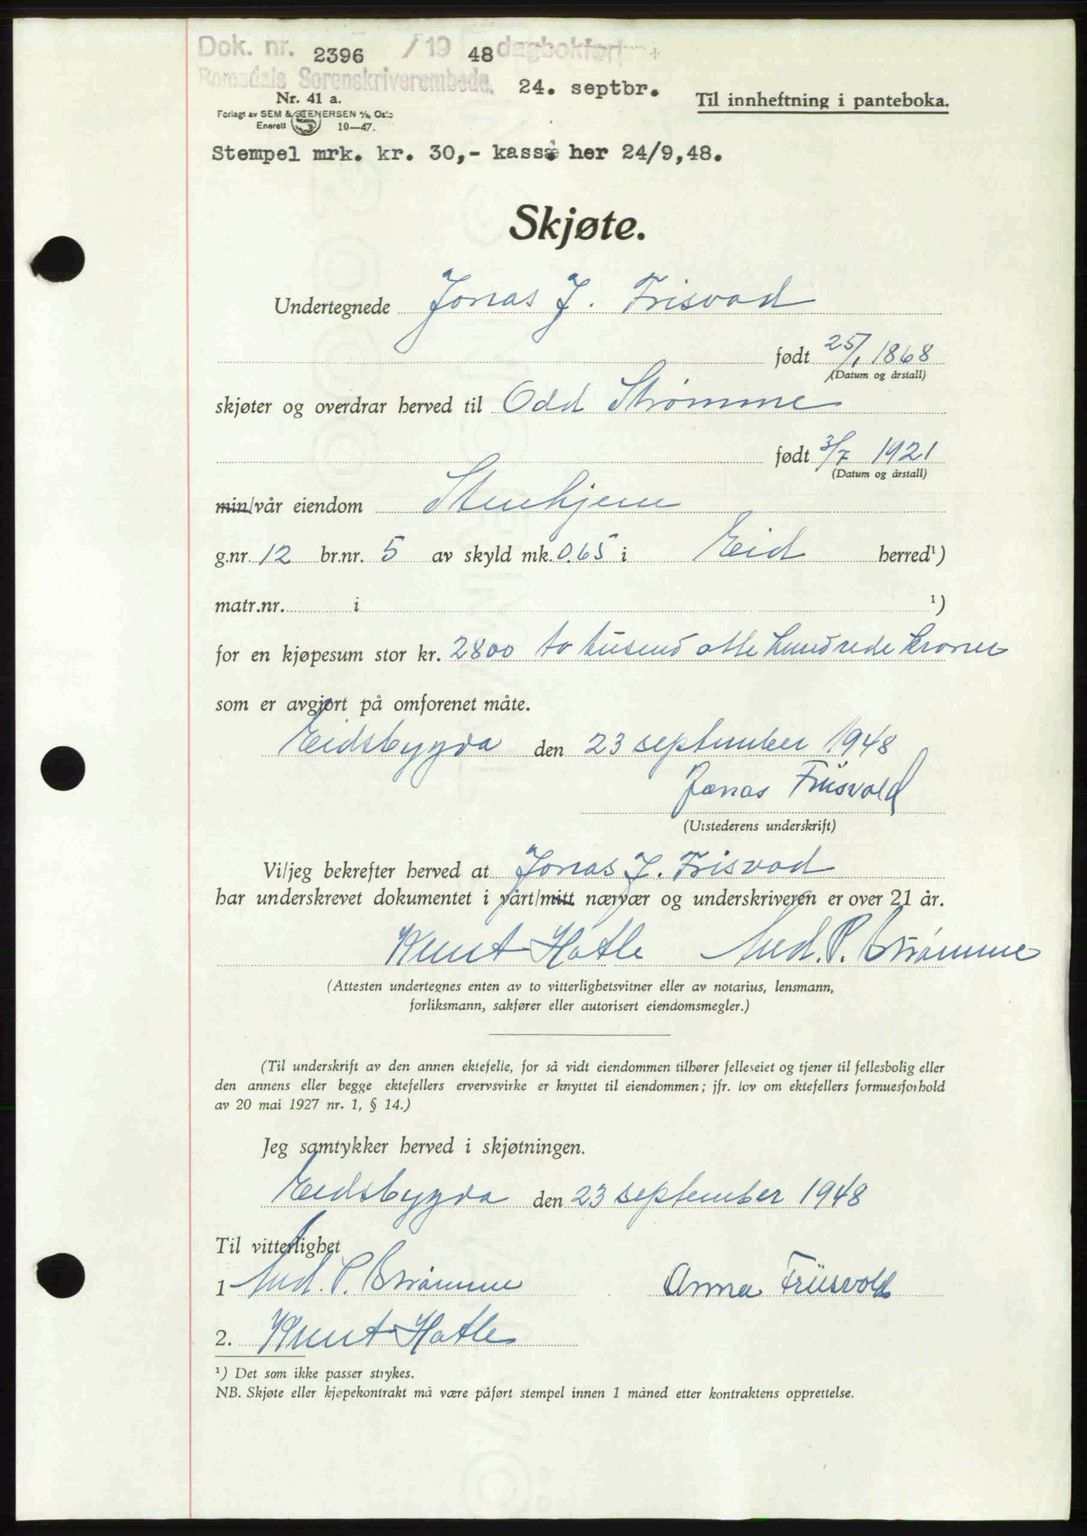 Dok. nr. 2396 / 19 48 dagbokført
Romsdals Sorenskriverembede. 24. septbr.
Nr. 41 a. Til innheftning i panteboka.
Forlagt av SEM & STENERSEN A/S, Oslo
Enerett 10—47.
Stempel mrk. kr. 30,- kasse her 24/9,48.
Skjøte.
Undertegnede Jonas J. Frisvad
født 25/1 1868
(Datum og årstall)
skjøter og overdrar herved til Odd Strømme
født 3/7 1921
(Datum og årstall)
min/vår eiendom Stenhjem
g.nr. 12 br.nr. 5 av skyld mk. 0.65 i Eid herred¹)
matr.nr. i ¹)
for en kjøpesum stor kr. 2800 to tusend otte hundrede kroner
som er avgjort på omforenet måte.
Eidsbygda den 23 september 1948
Jonas Friisvold
(Utstederens underskrift)
Vi/jeg bekrefter herved at Jonas J. Frisvad
har underskrevet dokumentet i vårt/mitt nærvær og underskriveren er over 21 år.
Knut Hatle And. P. Strømme
(Attesten undertegnes enten av to vitterlighetsvitner eller av notarius, lensmann,
forliksmann, sakfører eller autorisert eiendomsmegler.)
(Til underskrift av den annen ektefelle, for så vidt eiendommen tilhører felleseiet og tjener til fellesbolig eller
den annens eller begge ektefellers ervervsvirke er knyttet til eiendommen; jfr. lov om ektefellers formuesforhold
av 20 mai 1927 nr. 1, § 14.)
Jeg samtykker herved i skjøtningen.
Eidsbygda den 23 september 1948
Til vitterlighet
1 And. P. Strømme Anna Friisvold
2. Knut Hatle
¹) Det som ikke passer strykes.
NB. Skjøte eller kjøpekontrakt må være påført stempel innen 1 måned etter kontraktens opprettelse.